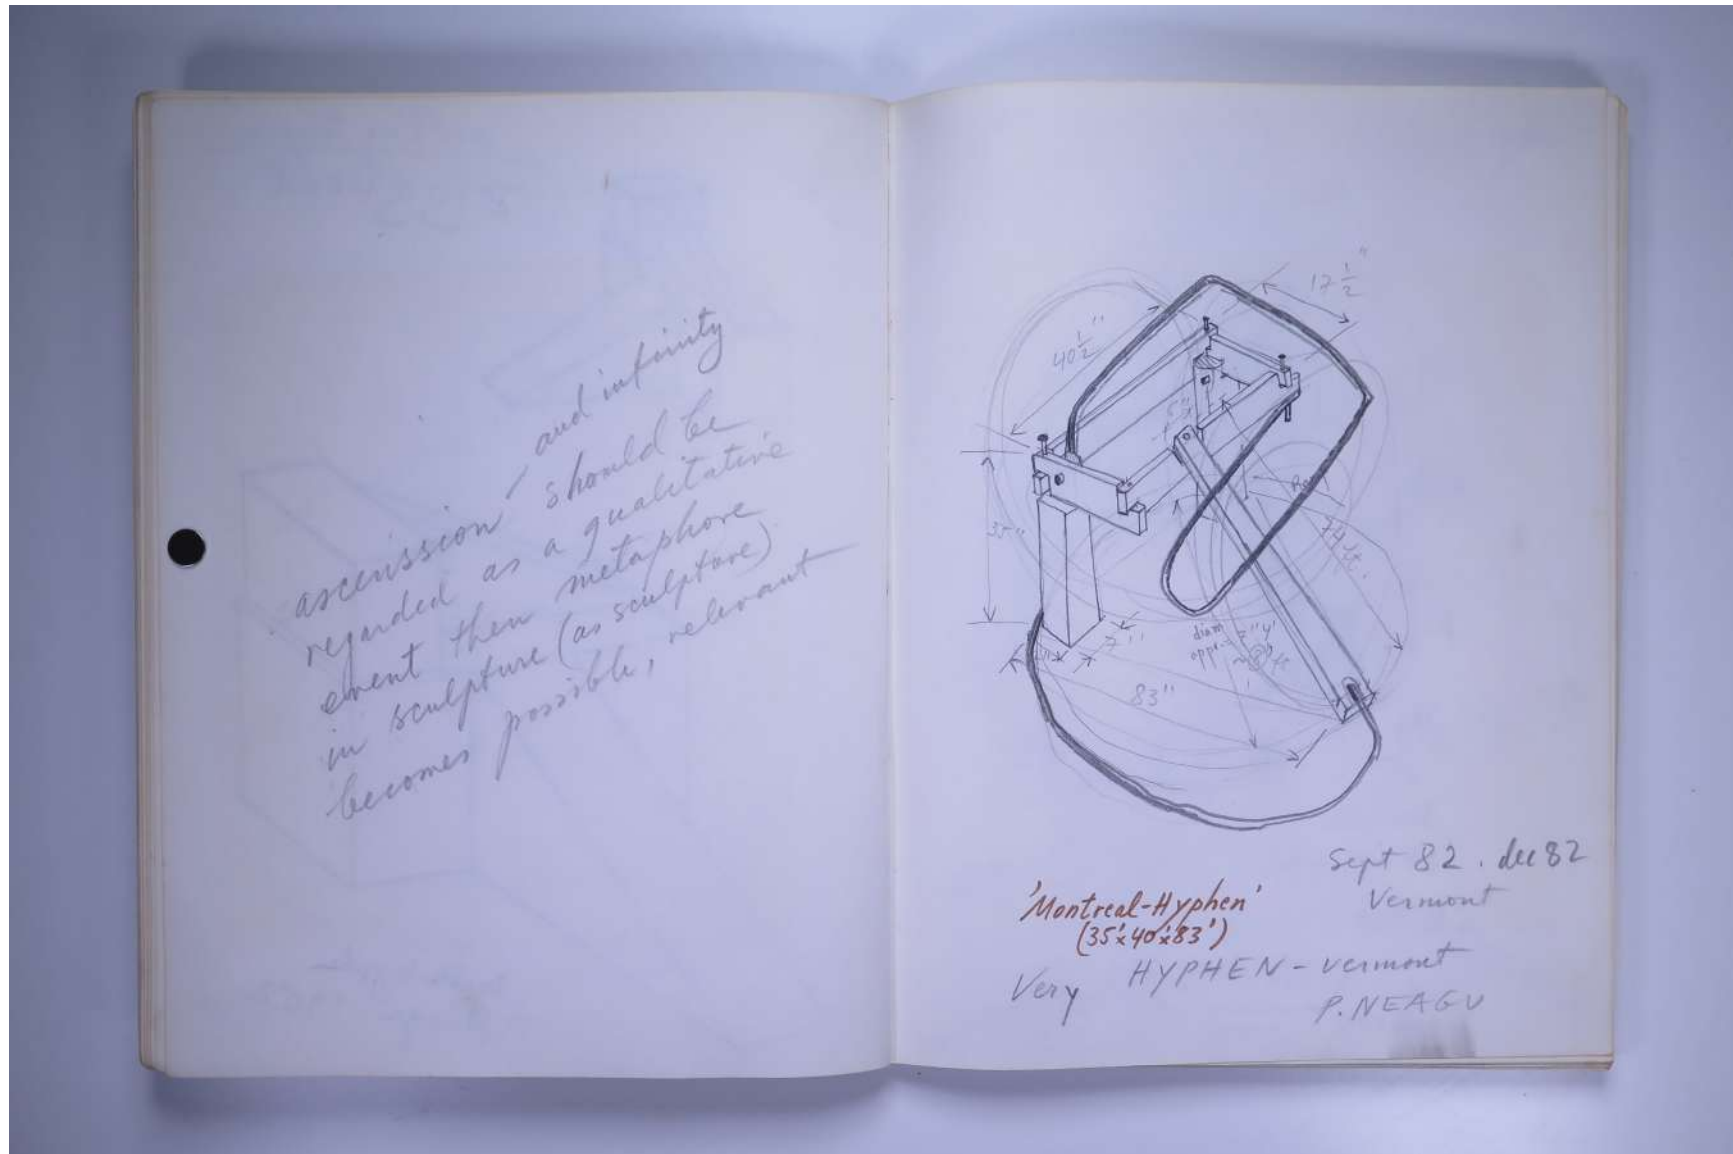 and infinity
ascenssion should be
regarded as a qualitative
event then metaphore
in sculpture (as sculpture)
becomes possible, relevant
17 1/2"
40 1/2"
35"
7"
diam
appr.
83"
Sept 82 . dec 82
Vermont
'Montreal-Hyphen'
(35'x40'x83')
Very HYPHEN - vermont
P. NEAGU